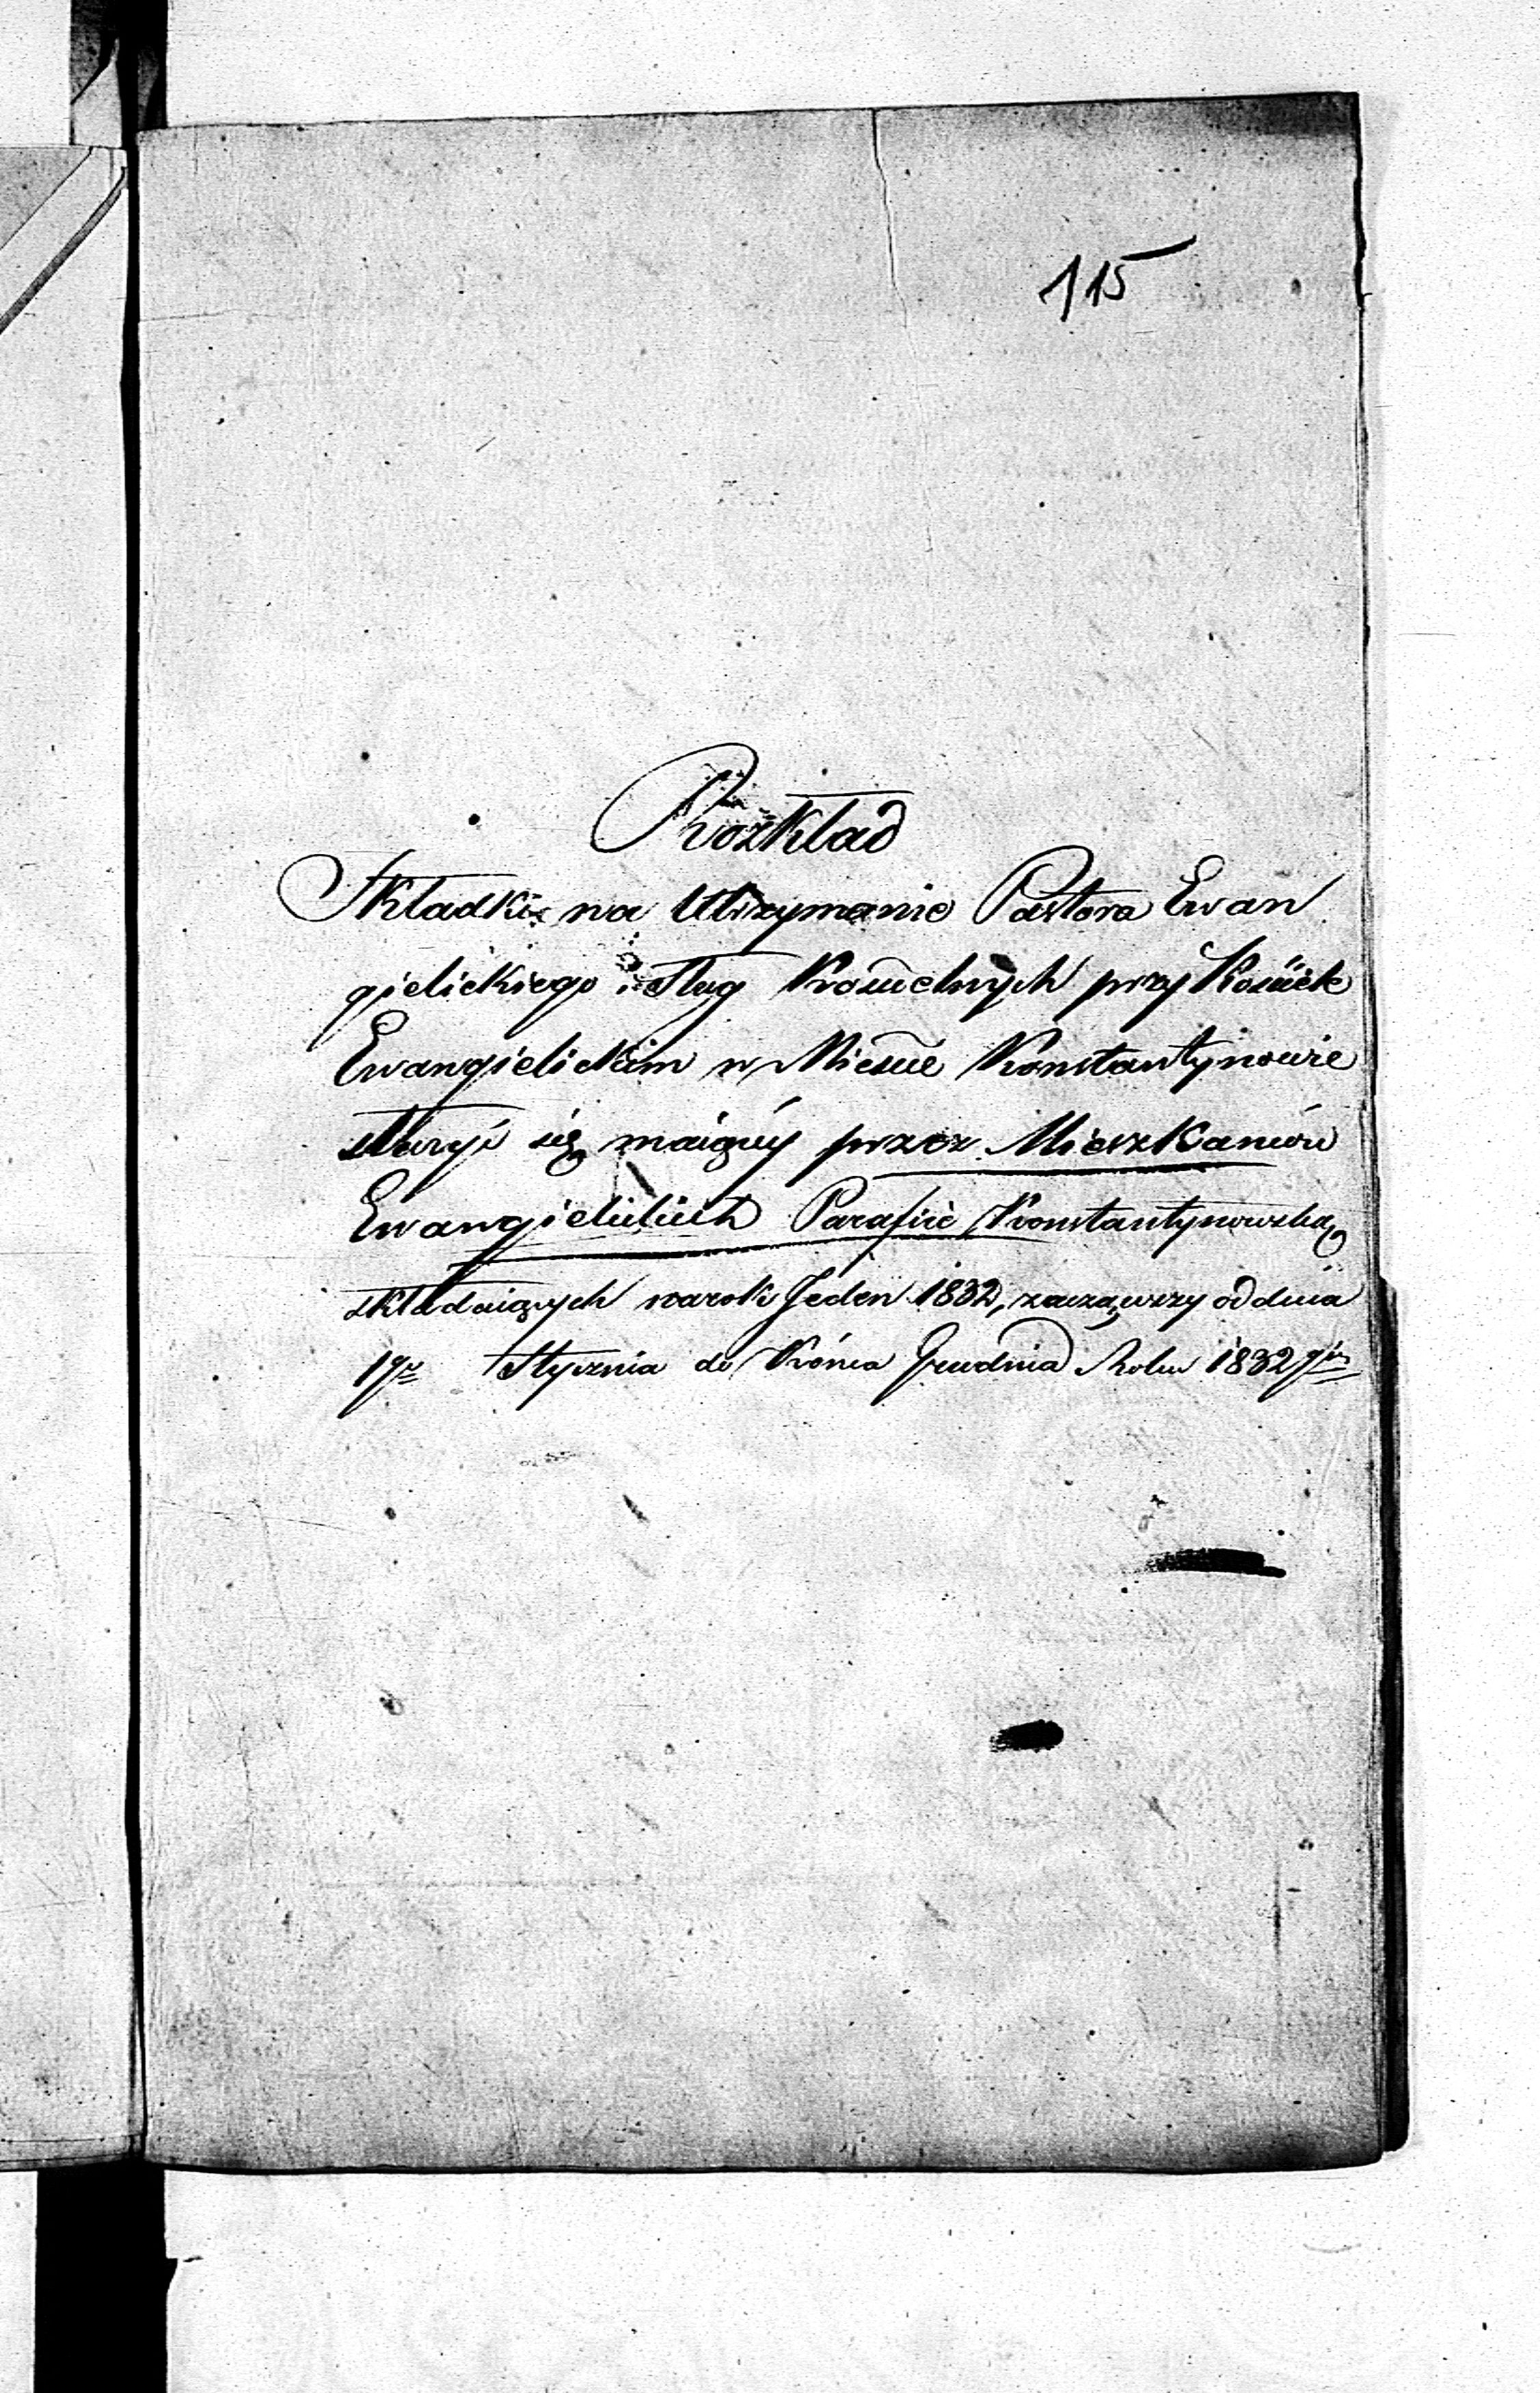 115
Rozkład
Składki na Utrzymanie Pastora Ewan
gielickiego i sług Kościelnych przy Kościele
Ewangielickim w Mieście Konstantynowie
się maiący przez Mieszkańców
Ewangielickich Parafiie Konstantynowską
składaiących na rok Jeden 1832, zacząwszy od dnia
1go Stycznia do Końca Grudnia Roku 1832go